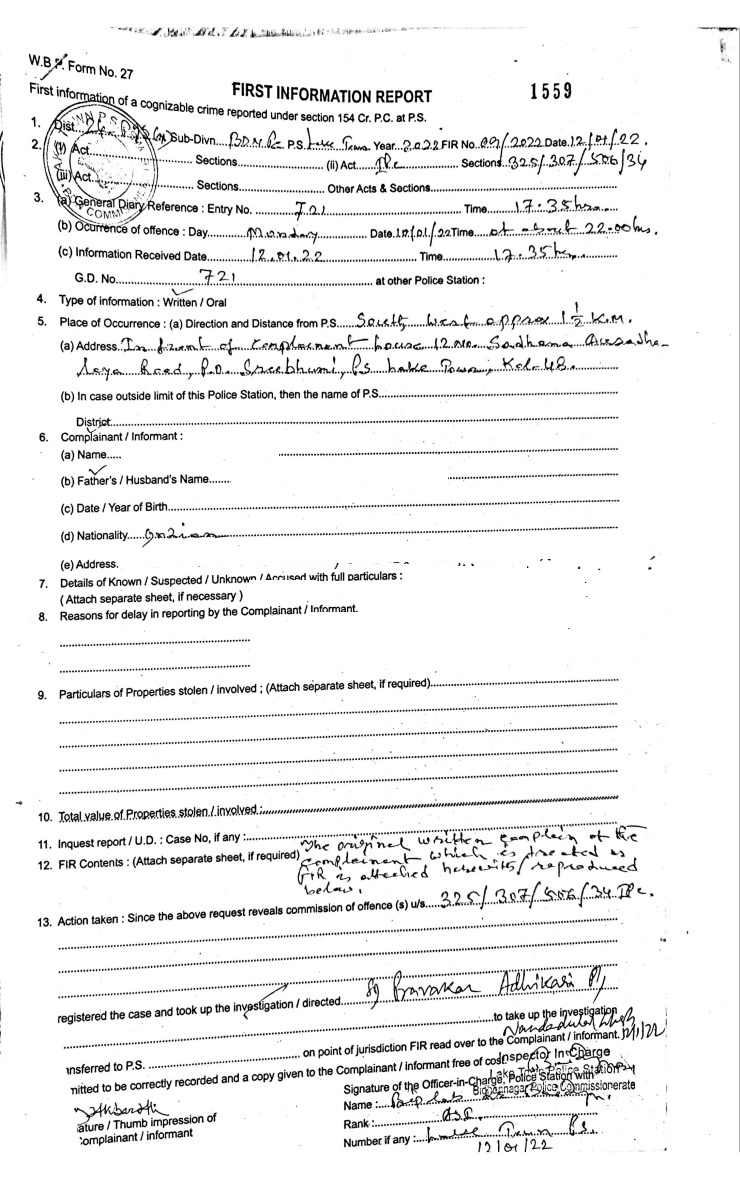 W.B.P. Form No. 27
FIRST INFORMATION REPORT 1559
First information of a cognizable crime reported under section 154 Cr. P.C. at P.S.
1. Dist. Sub-Divn.... P.S. Lake Town Year 2022 FIR No. 09/2022 Date 12/01/22.
2. (i) Act. Sections (ii) Act. IPC Sections 325/307/506/34
(iii) Act. Sections Other Acts & Sections
3. (a) General Diary Reference : Entry No. 721 Time 17:35 hrs
(b) Ocurrence of offence : Day Monday Date 10/01/22 Time at about 22.00 hrs.
(c) Information Received Date 12.01.22 Time 17:35 hrs
G.D. No. 721 at other Police Station :
4. Type of information : Written / Oral
5. Place of Occurrence : (a) Direction and Distance from P.S. South West approx 1 1/2 K.M.
(a) Address In front of complainent house 12 No. Sadhana Ausadha-
laya Road, P.O. Sreebhumi, P.S Lake Town, Kol-48.
(b) In case outside limit of this Police Station, then the name of P.S.
District
6. Complainant / Informant :
(a) Name.....
(b) Father's / Husband's Name.......
(c) Date / Year of Birth
(d) Nationality Indian
(e) Address.
7. Details of Known / Suspected / Unknown / Accused with full particulars :
( Attach separate sheet, if necessary )
8. Reasons for delay in reporting by the Complainant / Informant.
9. Particulars of Properties stolen / involved ; (Attach separate sheet, if required)
10. Total value of Properties stolen / involved :
11. Inquest report / U.D. : Case No, if any :
12. FIR Contents : (Attach separate sheet, if required) The original written complain of the
complainent which is treated as
FIR is attached herewith/reproduced
below.
13. Action taken : Since the above request reveals commission of offence (s) u/s 325/307/506/34 IPC.
registered the case and took up the investigation / directed SI Pravakar Adhikari
to take up the investigation
nsferred to P.S. on point of jurisdiction FIR read over to the Complainant / informant. 12/1/22
mitted to be correctly recorded and a copy given to the Complainant / informant free of cost
Inspector In-Charge
Lake Town Police Station
Signature of the Officer-in-Charge, Police Station with
Bidhannagar Police Commissionerate
Name :
ature / Thumb impression of
Rank : ASI
complainant / informant
Number if any : Lake Town P.S.
12/01/22